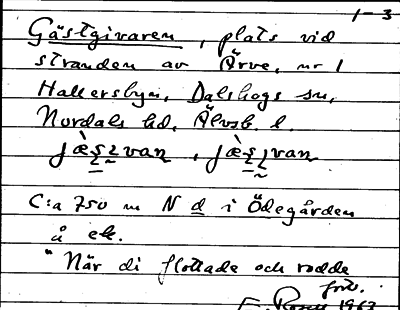 1-3
Gästgivaren, plats vid
stranden av Ärve, nr 1
Hallersbyn, Dalskogs sn,
Nordals hd, Älvsb. l.
C:a 750 m N d i Ödegården
å ek.
"När di flottade och rodde
förb.
1963